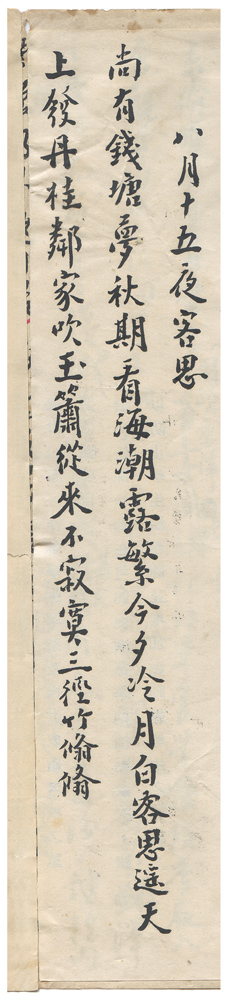 八月十五夜客思
尚有錢塘夢秋期看海潮露繁今夕冷月白客思遥天
上發丹桂鄰家吹玉簫從來不寂寞三徑竹翛翛